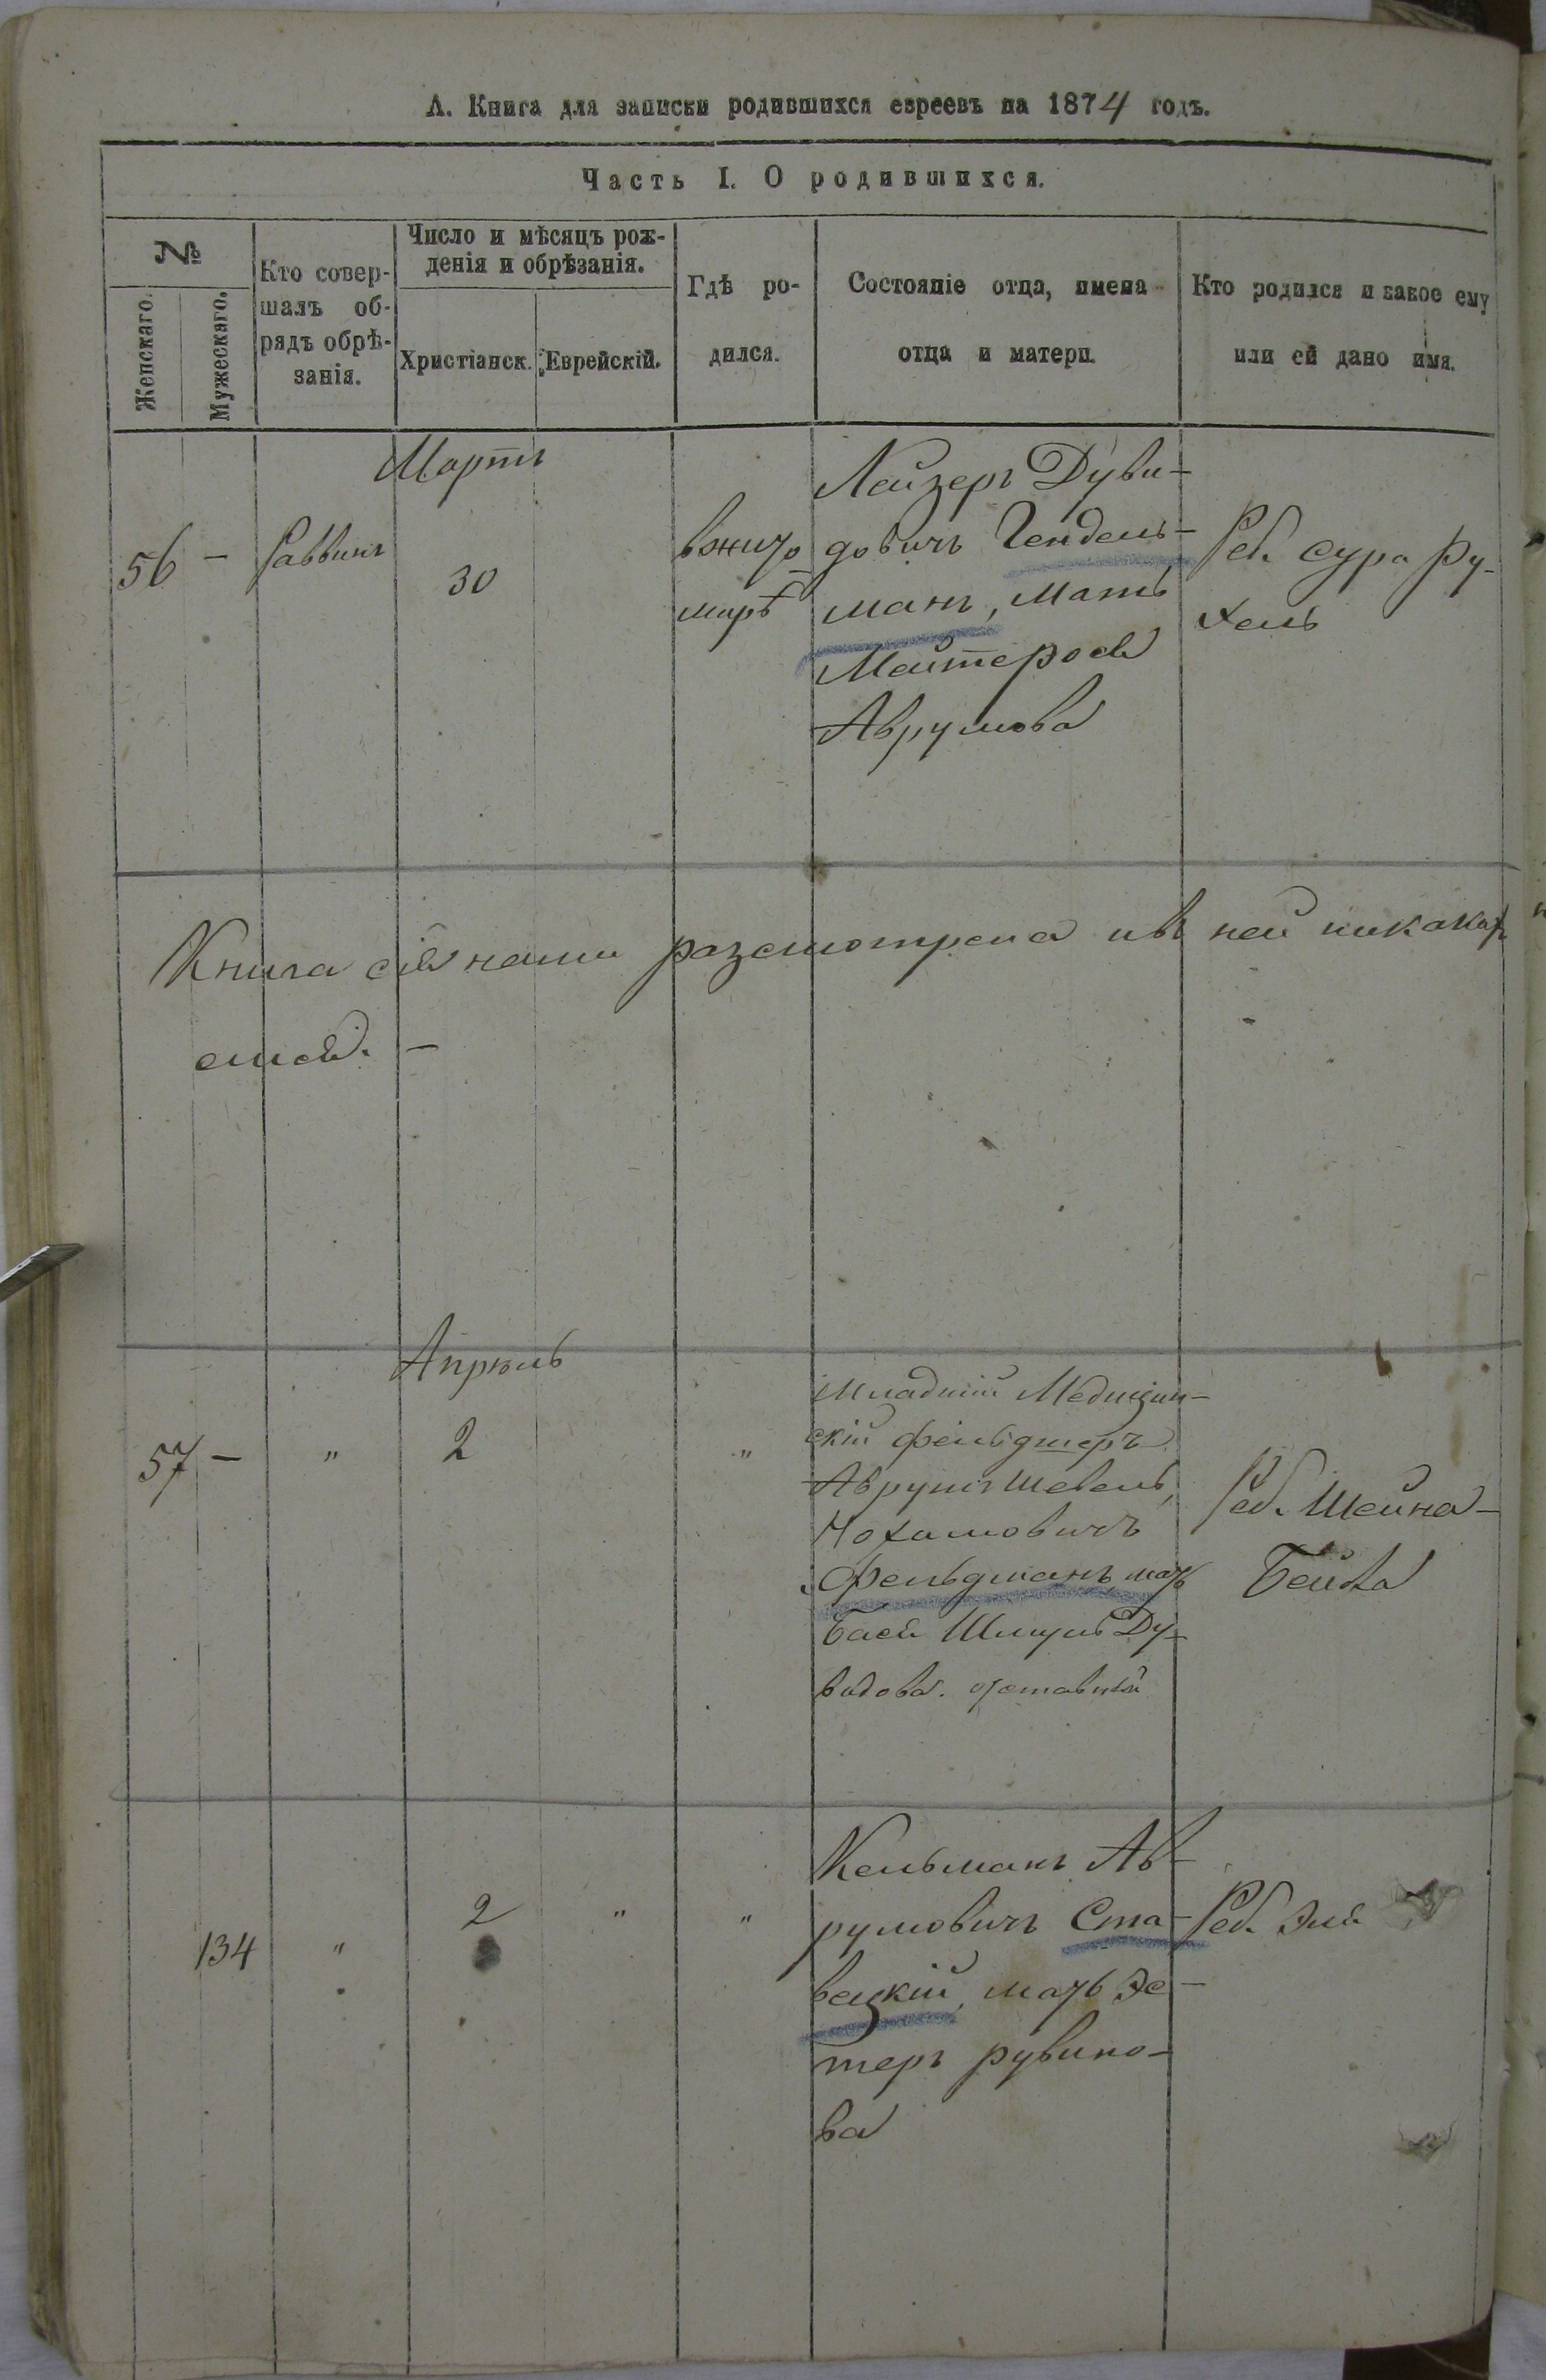 А. Книга для записки родившихся евреевъ на 1874 годъ.
Часть I. О родившихся.
№
Женскаго.
Мужескаго.
Кто совер-
шалъ об-
рядъ обрѣ-
занія.
Число и мѣсяцъ рож-
денія и обрѣзанія.
Христіанск.
Еврейскій.
Гдѣ ро-
дился.
Состояніе отца, имена
отца и матери.
Кто родился и какое ему
или ей дано имя.
Мартъ
56 –
Раввинъ
30
вжито
мирѣ
Лейзеръ Дуви-
довичъ Гендель-
манъ, мать
Аврумова
Реб. Сура Ру-
хель
Книга сія нами разсмотрена и въ ней никаких
Апрель
57 –
"
2
"
Младшій Медицин-
скій фельдшеръ
Аврумъ Шевель
Нохимовичъ
Фельдманъ, мать
Бася Дy-
видова. отставной
Реб. Шейна-
Бейла
134
"
2
"
"
Кельманъ Ав-
румовичъ Ста-
вецкій, мать Эс-
теръ Рувино-
ва
Реб. Эля